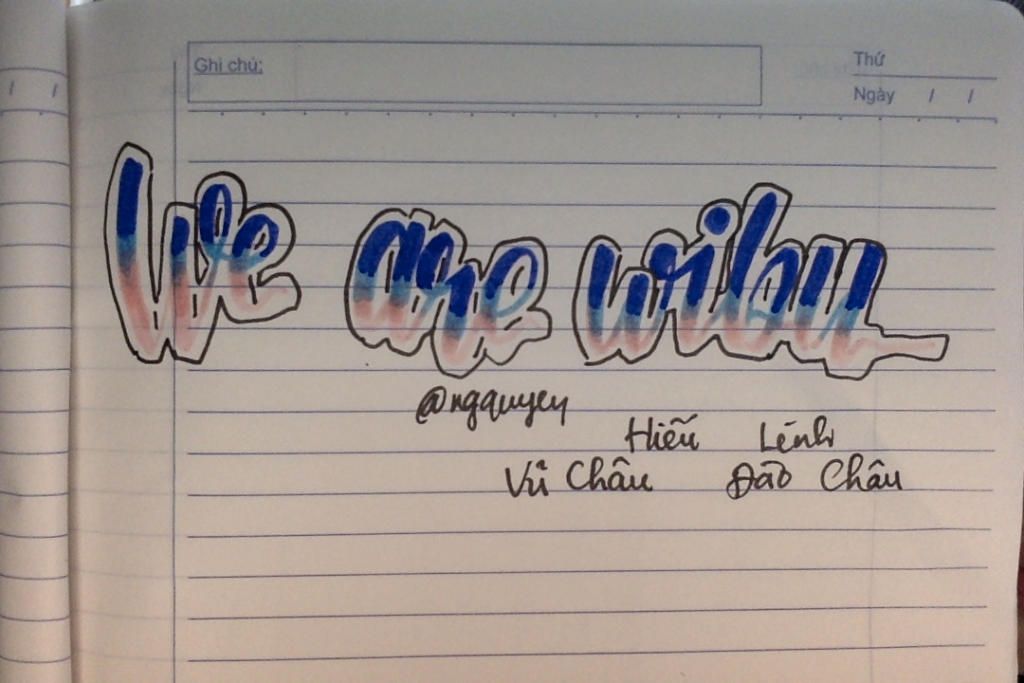 Ghi chú:
Thứ
Ngày / /
We are wibu
@ngquyen
Hiếu Lệnh
Vũ Châu Đào Châu